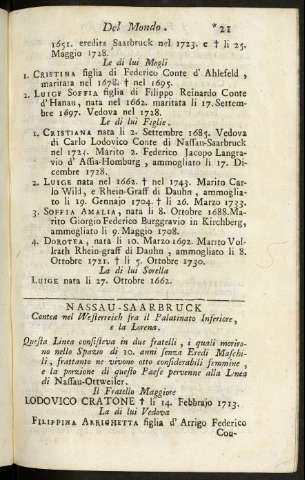 Del Mondo. *21
1651. eredita Saarbruck nel 1723. e † li 25.
Maggio 1728.
Le di lui Mogli
1. CRISTINA figlia di Federico Conte d' Ahlefeld,
maritata nel 1678. † nel 1695.
2. LUIGE SOFFIA figlia di Filippo Reinardo Conte
d'Hanau, nata nel 1662. maritata li 17. Settem-
bre 1697. Vedova nel 1728.
Le di lui Figlie.
1. CRISTIANA nata li 2. Settembre 1685. Vedova
di Carlo Lodovico Conte di Nassau-Saarbruck
nel 1721. Marito 2. Federico Jacopo Langra-
vio d' Assia-Homburg, ammogliato li 17. Di-
cembre 1728.
2. LUIGE nata nel 1662. † nel 1743. Marito Car-
lo Wild, e Rhein-Graff di Dauhn, ammoglia-
to li 19. Gennajo 1704. † li 26. Marzo 1733.
3. SOFFIA AMALIA, nata li 8. Ottobre 1688. Ma-
rito Giorgio Federico Burggravio in Kirchberg,
ammogliato li 9. Maggio 1708.
4. DOROTEA, nata li 10. Marzo 1692. Marito Vol-
krath Rhein-graff di Dauhn, ammogliato li 8.
Ottobre 1721. † li 5. Ottobre 1730.
La di lui Sorella
LUIGE nata li 27. Ottobre 1662.
NASSAU-SAARBRUCK
Contea nel Westerreich fra il Palatinato Inferiore,
e la Lorena.
Questa Linea consisteva in due fratelli, i quali moriro-
no nello Spazio di 10. anni senza Eredi Maschi-
li, frattanto ne vivono otto considerabili femmine,
e la porzione di questo Paese pervenne alla Linea
di Nassau-Ottweiler.
Il Fratello Maggiore
LODOVICO CRATONE † li 14. Febbrajo 1713.
La di lui Vedova
FILIPPINA ARRIGHETTA figlia d'Arrigo Federico
Con-